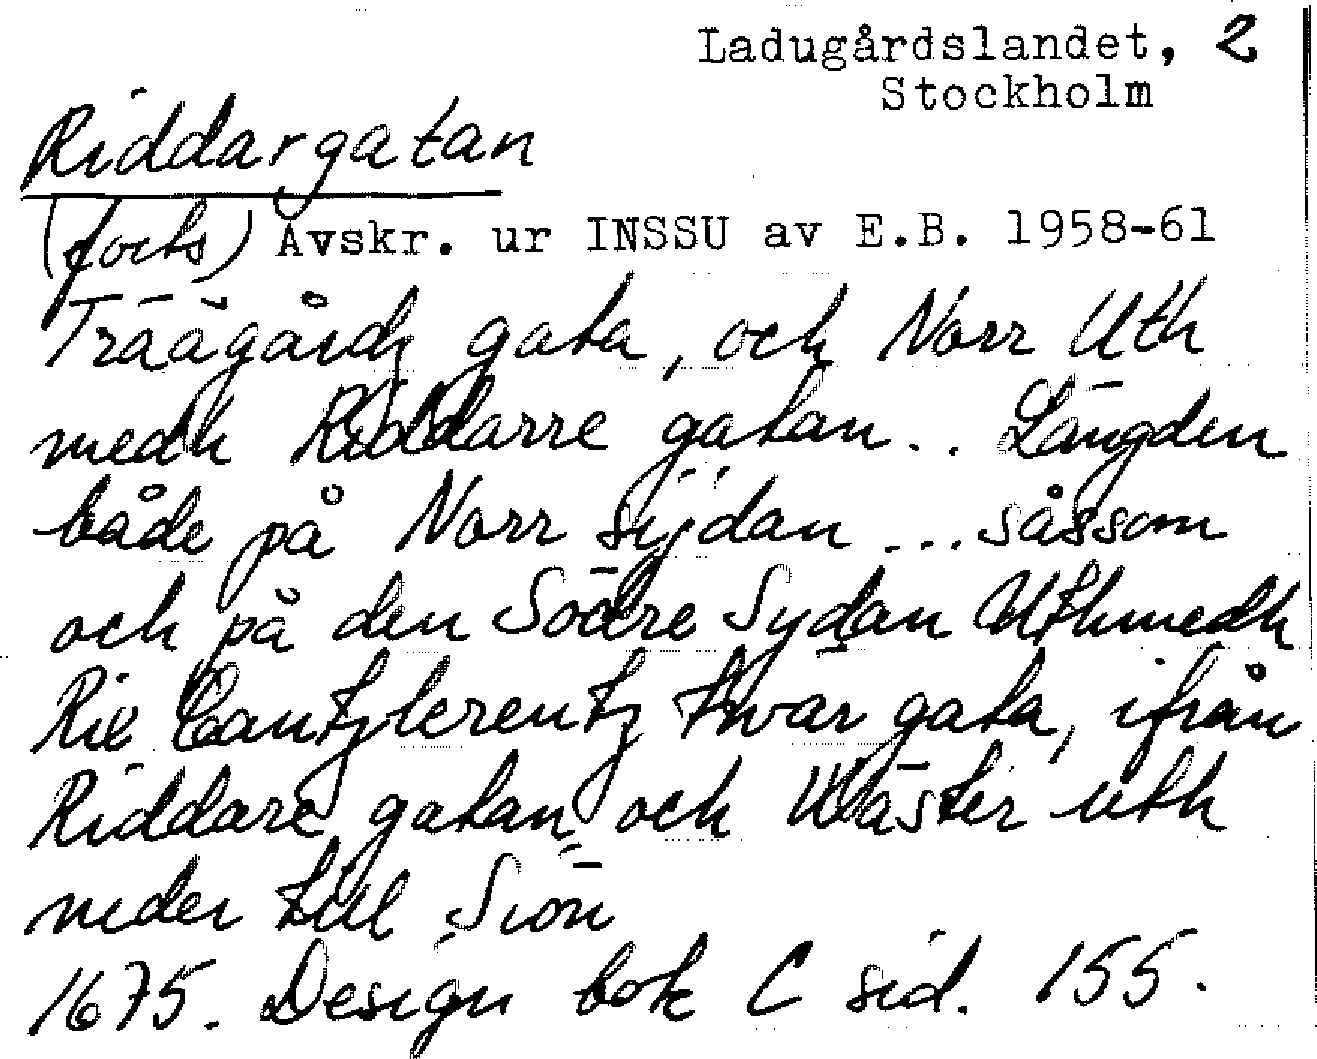 Ladugårdslandet, 2
Stockholm
Riddargatan
(forts) Avskr. ur INSSU av E.B. 1958-61
Träägårdz gata, och Norr Uth
medh Riddarre gatan.. Längden
både på Norr sÿdan ... såssom
och på den Södre Sydan Uthmedh
Rix Cantzlerentz twär gata, ifrån
Riddare gatan och Wäster uth
neder till Siön
1675. Design bok C sid. 155.